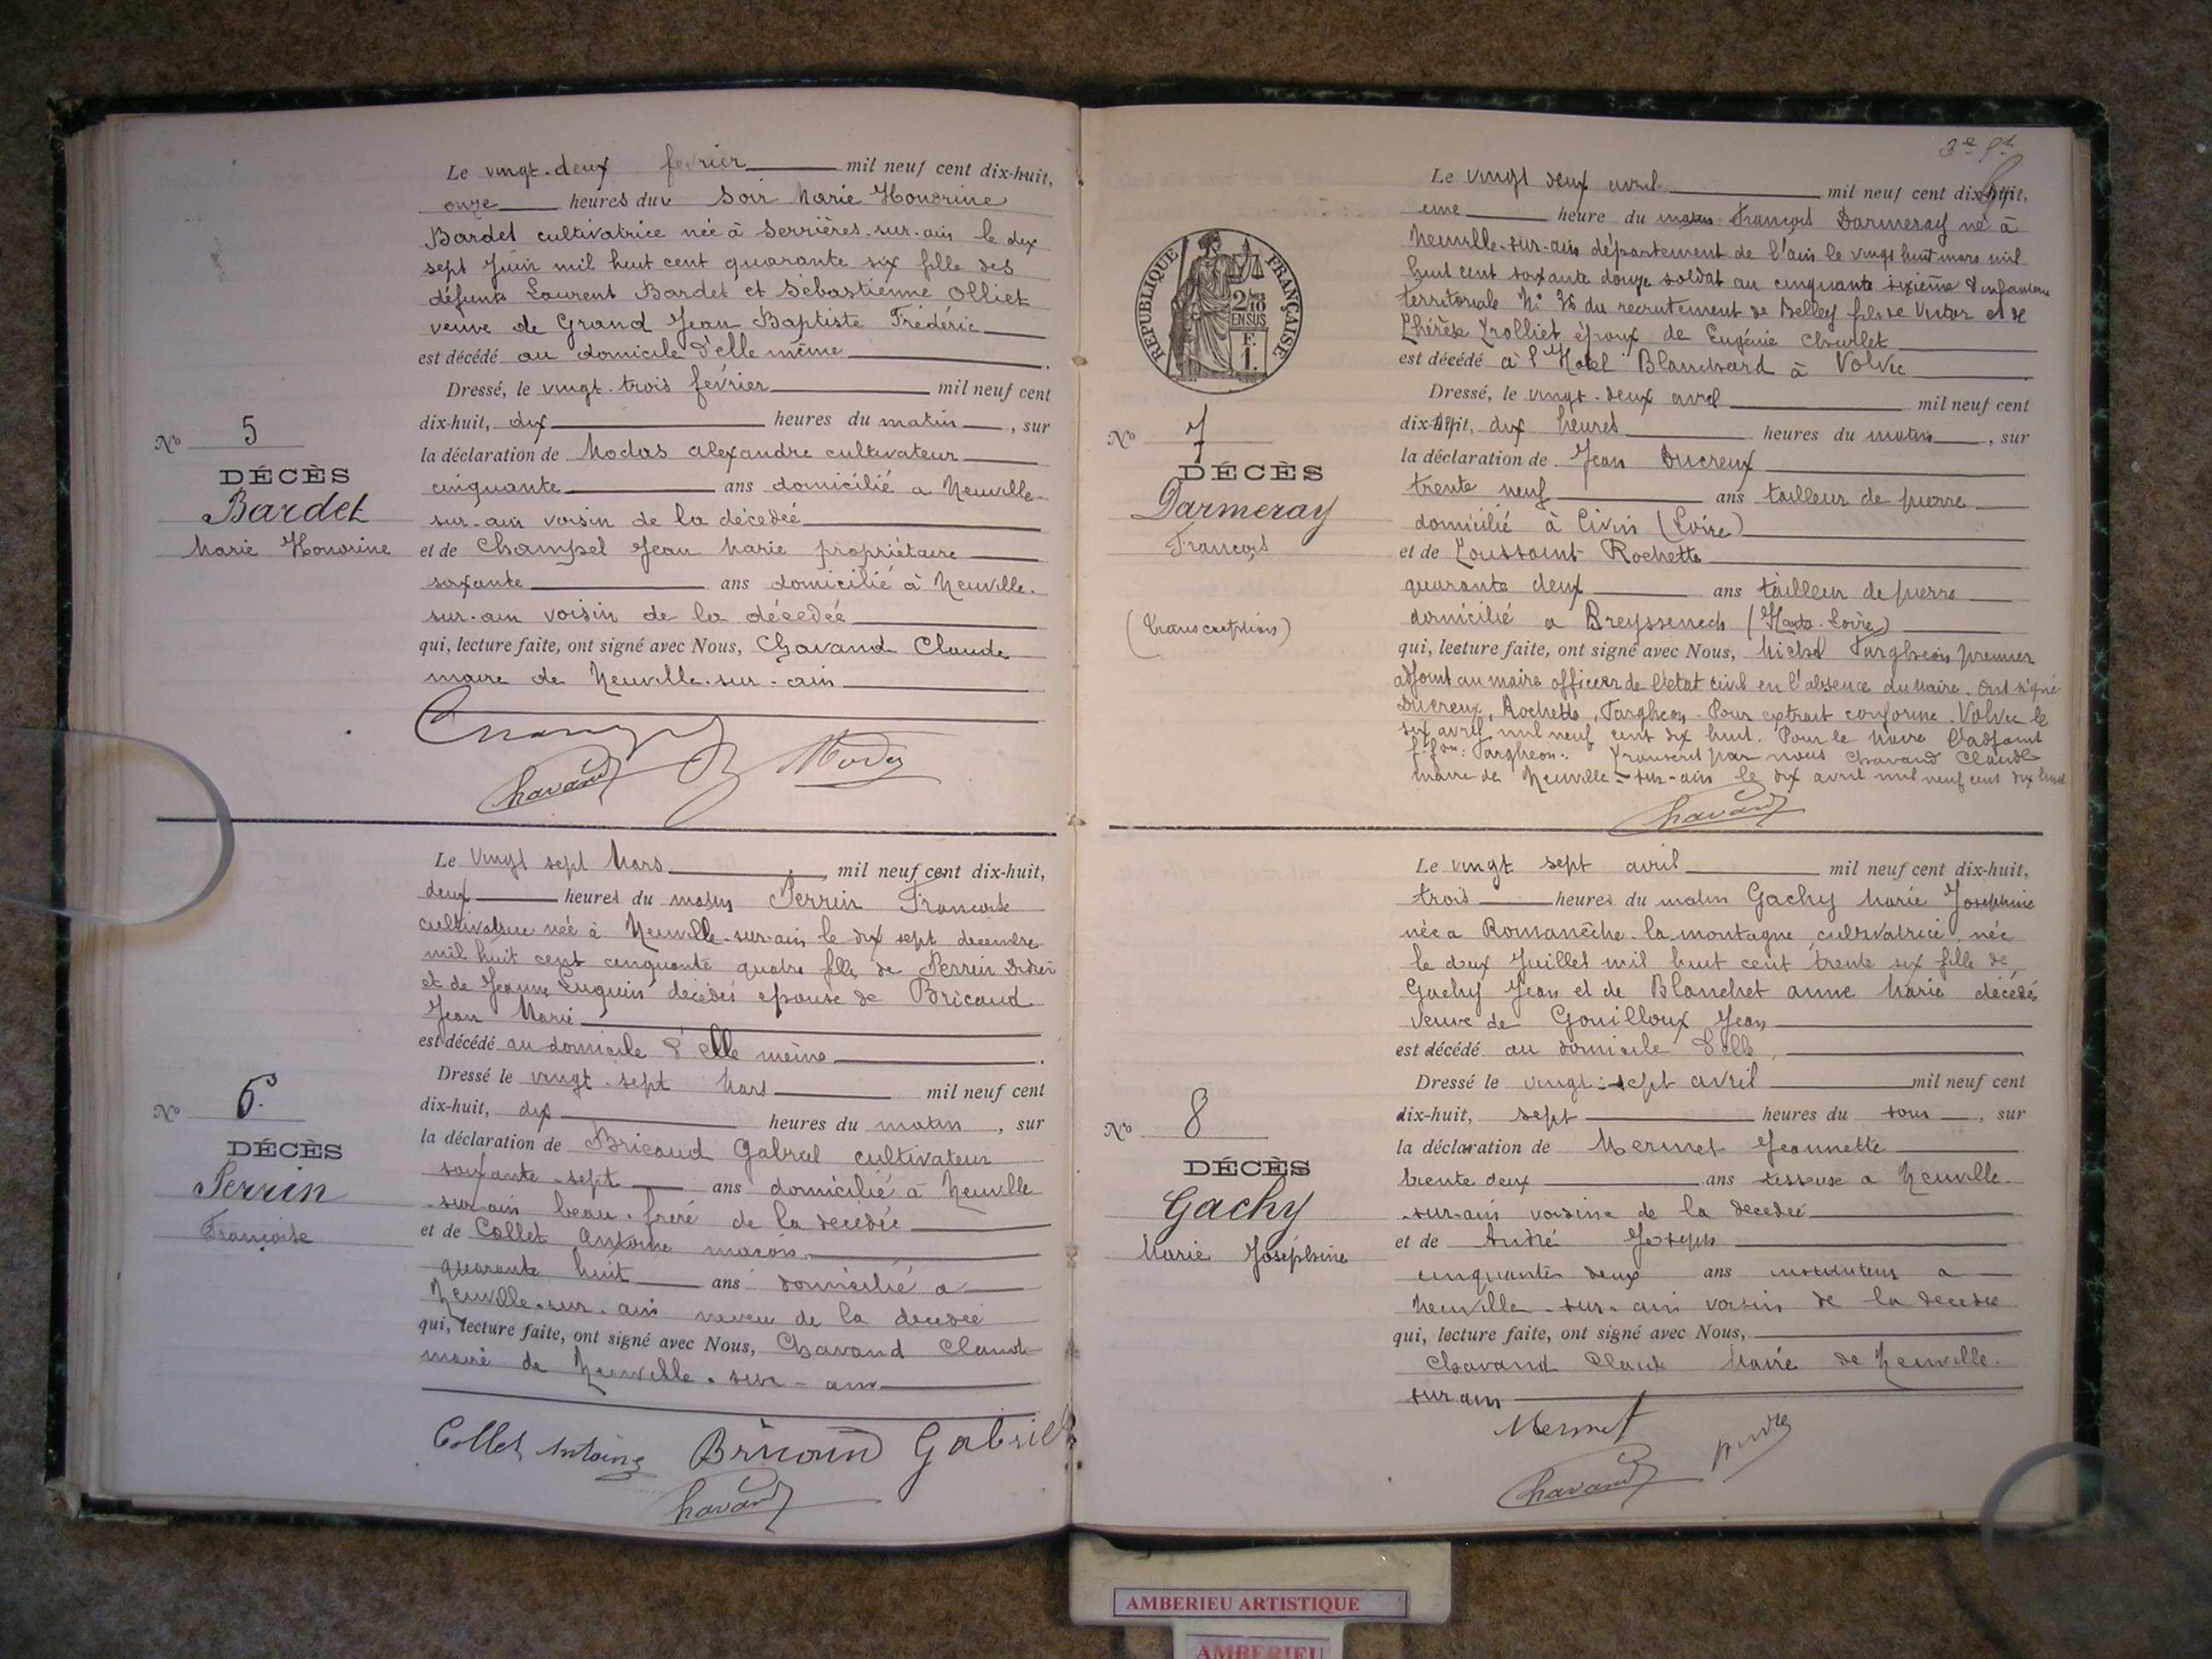 Le vingt-deux fevrier mil neuf cent dix-huit,
onze heures du soir Marie Honorine
Bardet cultivatrice née à Serrières-sur-ain le dix
sept Juin mil huit cent quarante six fille des
défunts Laurent Bardet et Sébastienne Olliet
veuve de Grand Jean Baptiste Frédéric
est décédé au domicile d'elle même
Dressé, le vingt-trois fevrier mil neuf cent
dix-huit, dix heures du matin, sur
la déclaration de Modas alexandre cultivateur
cinquante ans domicilié a Neuville
sur-ain voisin de la décedeé
et de Champel Jean Marie propriétaire
soixante ans domicilié à Neuville-
sur-ain voisin de la décedée
qui, lecture faite, ont signé avec Nous, Chavand Claude
maire de Neuville-sur-ain
Chavand
No 5
DÉCÈS
Bardet
Marie Honorine
Le vingt sept Mars mil neuf cent dix-huit,
deux heures du matin Perrin Francoise
cultivatrice née à Neuville-sur-ain le dix sept decembre
mil huit cent cinquante quatre fille de Perrin
et de Jeanne décédés epouse de Bricaud
Jean Marie
est décédé au domicile d'elle même
Dressé le vingt-sept Mars mil neuf cent
dix-huit, dix heures du matin, sur
la déclaration de Bricaud Gabriel cultivateur
soixante-sept ans domicilié à Neuville
-sur-ain beau-frère de la decédée
et de Collet Antoine maçon
quarante huit ans domicilié a
Neuville-sur-ain neveu de la decedée
qui, lecture faite, ont signé avec Nous, Chavand Claude
maire de Neuville-sur-ain
Collet Antoine Bricaud Gabriel
Chavand
No 6
DÉCÈS
Perrin
Françoise
3e
Le vingt deux avril mil neuf cent dix-huit,
une heure du matin François Darmeray né à
Neuville-sur-ain département de l'ain le vingt huit mars mil
huit cent soixante douze soldat au cinquante sixième d'infanterie
territoriale N° 36 du recrutement de Belley fils de Victor et de
Thérèse Trolliet époux de Eugénie
est décédé à l'Hotel Blanchard à Volvic
Dressé, le vingt-deux avril mil neuf cent
dix-huit, dix heures heures du matin, sur
la déclaration de Jean Ducreux
trente neuf ans tailleur de pierre
domicilié à Civin (Loire)
et de Toussaint Rochette
quarante deux ans tailleur de pierre
domicilié a (Haute-Loire)
qui, lecture faite, ont signé avec Nous, Michel Targheon premier
adjoint au maire officier de l'état civil en l'absence du Maire. Ont signé
Ducreux, Rochette, Targheon. Pour extrait conforme. Volvic le
six avril mil neuf cent dix huit. Pour le Maire l'adjoint
Targheon. Transcrit par nous Chavand Claude
maire de Neuville-sur-ain le dix avril mil neuf cent dix huit
Chavand
RÉPUBLIQUE FRANÇAISE
2/10
EN SUS
F.
1.
No 7
DÉCÈS
Darmeray
François
(transcription)
Le vingt sept avril mil neuf cent dix-huit,
trois heures du matin Gachy Marie Josephine
née a Romanèche-la-montagne cultivatrice née
le deux Juillet mil huit cent trente six fille de
Gachy Jean et de Blanchet anne Marie décédés
veuve de Gouilloux Jean
est décédé au domicile d'elle
Dressé le vingt-sept avril mil neuf cent
dix-huit, sept heures du soir, sur
la déclaration de Mermet Jeannette
trente deux ans tisseuse a Neuville-
-sur-ain voisine de la decedeé
et de André Joseph
cinquante deux ans instituteur a
Neuville-sur-ain voisin de la decedée
qui, lecture faite, ont signé avec Nous,
Chavand Claude Maire de Neuville-
sur ain
Mermet
Chavand
No 8
DÉCÈS
Gachy
Marie Joséphine
AMBERIEU ARTISTIQUE
AMBERIEU